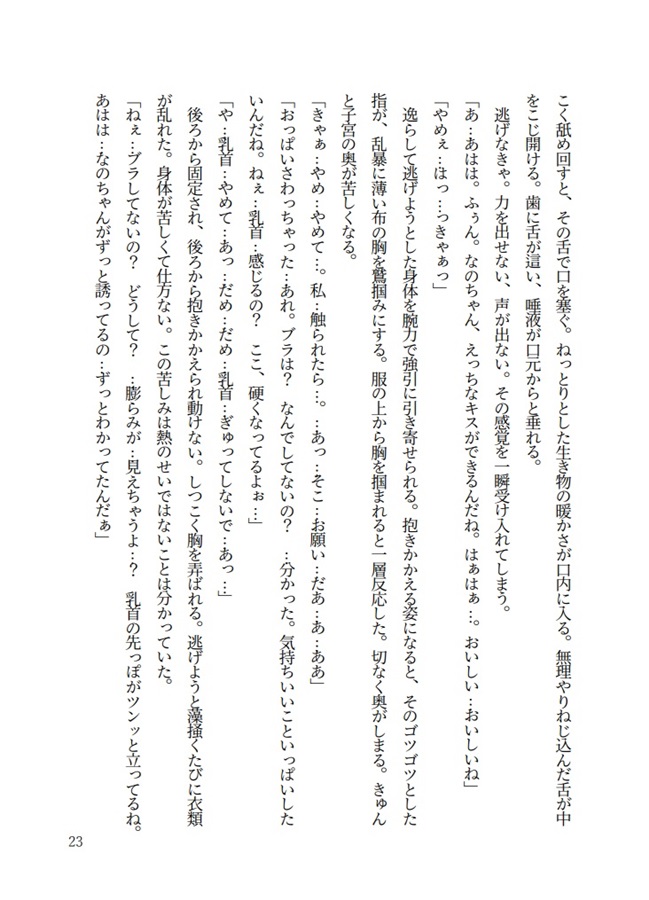 こく舐め回すと、その舌で口を塞ぐ。ねっとりとした生き物の暖かさが口内に入る。無理やりねじ込んだ舌が中
をこじ開ける。歯に舌が這い、唾液が口元からと垂れる。
逃げなきゃ。力を出せない、声が出ない。その感覚を一瞬受け入れてしまう。
「あ…あはは。ふぅん。なのちゃん、えっちなキスができるんだね。はぁはぁ…。おいしい…おいしいね」
「やめぇ…はっ…っきゃぁっ」
逸らして逃げようとした身体を腕力で強引に引き寄せられる。抱きかかえる姿になると、そのゴツゴツとした
指が、乱暴に薄い布の胸を鷲掴みにする。服の上から胸を掴まれると一層反応した。切なく奥がしまる。きゅん
と子宮の奥が苦しくなる。
「きゃぁ…やめ…やめて…。私…触られたら…。…あっ…そこ…お願い…だぁ…あ…ああ」
「おっぱいさわっちゃった…あれ。ブラは？　なんでしてないの？　…分かった。気持ちいいこといっぱいした
いんだね。ねぇ…乳首…感じるの？　ここ、硬くなってるよぉ…」
「や…乳首…やめて…あっ…だめ…だめ…乳首…ぎゅってしないで…あっ…」
後ろから固定され、後ろから抱きかかえられ動けない。しつこく胸を弄ばれる。逃げようと藻掻くたびに衣類
が乱れた。身体が苦しくて仕方ない。この苦しみは熱のせいではないことは分かっていた。
「ねぇ…ブラしてないの？　どうして？　…膨らみが…見えちゃうよ…？　乳首の先っぽがツンッと立ってるね。
あはは…なのちゃんがずっと誘ってるの…ずっとわかってたんだぁ」
23